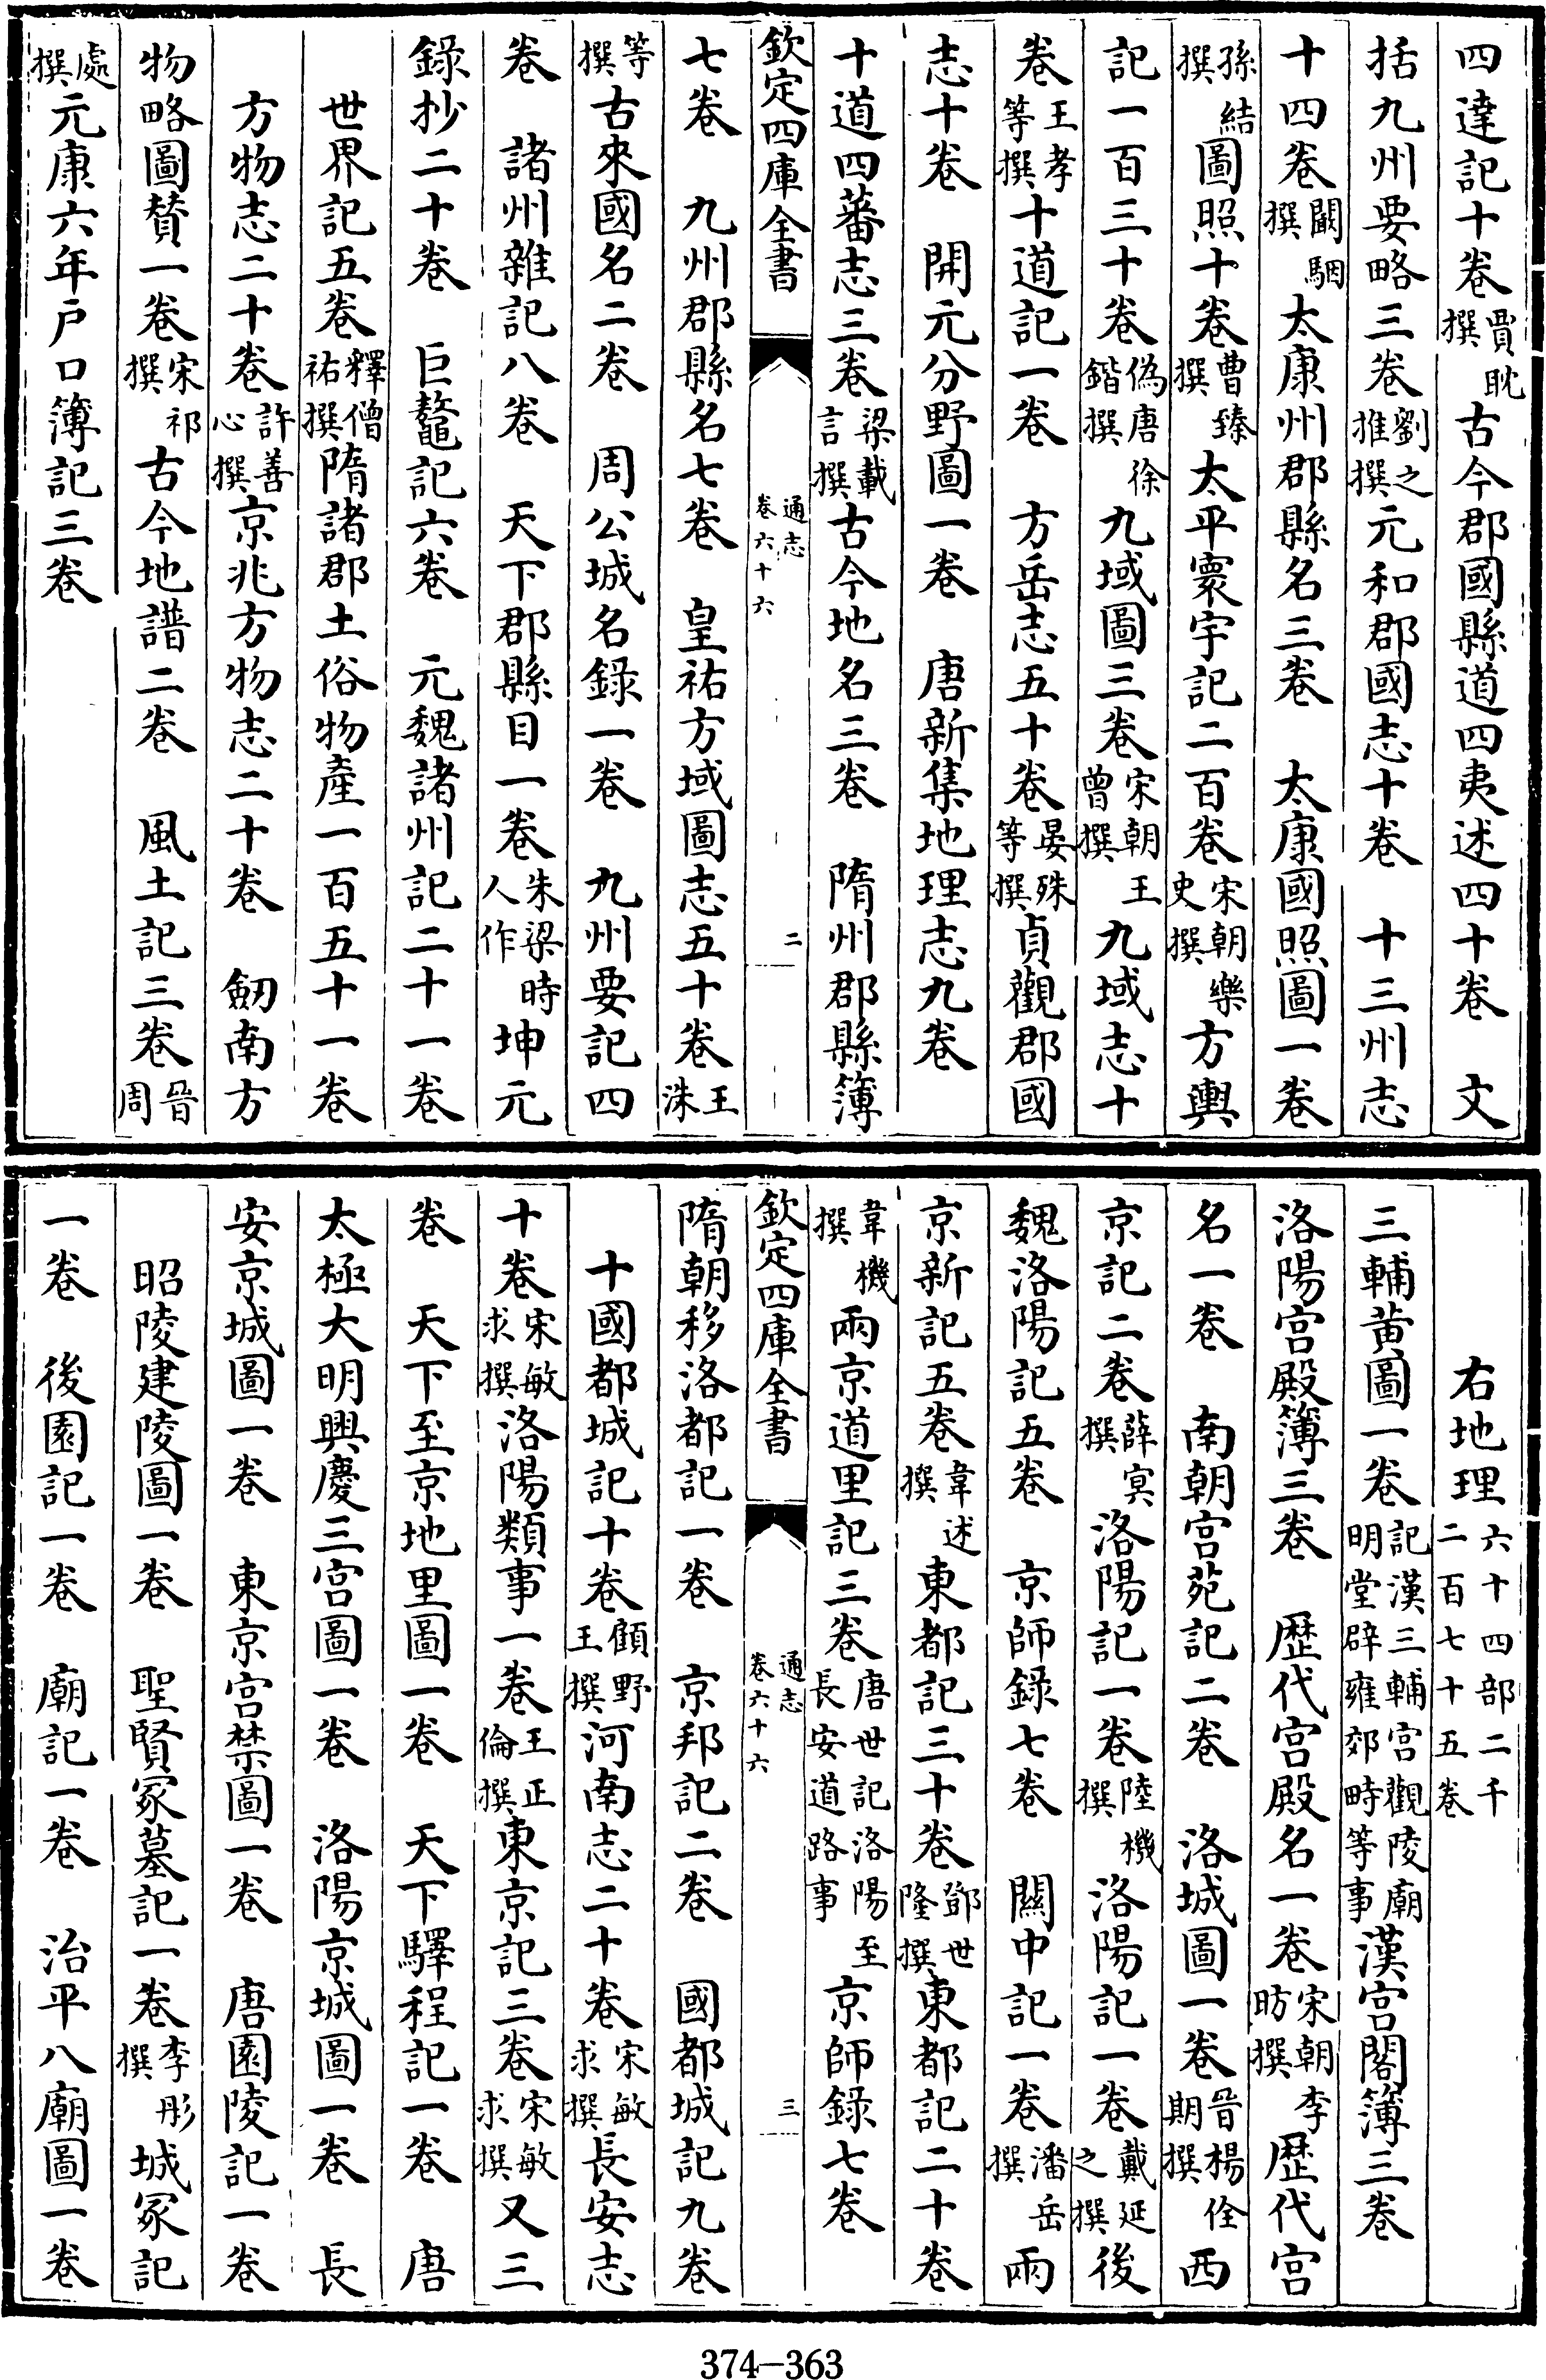 四達記十卷賈耽撰古今郡國縣道四夷述四十卷　文
括九州要略三卷劉之推撰元和郡國志十卷　十三州志
十四卷闞駰撰太康州郡縣名三卷　太康國照圖一卷
孫結撰圖照十卷曹臻撰太平寰宇記二百卷宋朝樂史撰方輿
記一百三十卷偽唐徐鍇撰九域圖三卷宋朝王曾撰九域志十
卷王孝等撰十道記一卷　方岳志五十卷晏殊等撰貞觀郡國
志十卷　開元分野圖一卷　唐新集地理志九卷
十道四蕃志三卷梁載言撰古今地名三卷　隋州郡縣簿
欽定四庫全書　通志卷六十六　二
七卷　九州郡縣名七卷　皇祐方域圖志五十卷王洙
等撰古來國名二卷　周公城名錄一卷　九州要記四
卷　諸州雜記八卷　天下郡縣目一卷朱梁時人作坤元
錄抄二十卷　巨鼇記六卷　元魏諸州記二十一卷
世界記五卷釋僧祐撰隋諸郡土俗物產一百五十一卷
方物志二十卷許善心撰京兆方物志二十卷　劒南方
物略圖贊一卷宋祁撰古今地譜二卷　風土記三卷晉周
處撰元康六年戶口簿記三卷
右地理六十四部二千二百七十五卷
三輔黃圖一卷記漢三輔宮觀陵廟明堂辟雍郊畤等事漢宮閣簿三卷
洛陽宮殿簿三卷　歷代宮殿名一卷宋朝李昉撰歷代宮
名一卷　南朝宮苑記二卷　洛城圖一卷晉楊佺期撰西
京記二卷薛冥撰洛陽記一卷陸機撰洛陽記一卷戴延之撰後
魏洛陽記五卷　京師錄七卷　關中記一卷潘岳撰兩
京新記五卷韋述撰東都記三十卷鄧世隆撰東都記二十卷
韋機撰兩京道里記三卷唐世記洛陽至長安道路事京師錄七卷
欽定四庫全書　通志卷六十六　三
隋朝移洛都記一卷　京邦記二卷　國都城記九卷
十國都城記十卷顧野王撰河南志二十卷宋敏求撰長安志
十卷宋敏求撰洛陽類事一卷王正倫撰東京記三卷宋敏求撰又三
卷　天下至京地里圖一卷　天下驛程記一卷　唐
太極大明興慶三宮圖一卷　洛陽京城圖一卷　長
安京城圖一卷　東京宮禁圖一卷　唐園陵記一卷
昭陵建陵圖一卷　聖賢冢墓記一卷李彤撰城冢記
一卷　後園記一卷　廟記一卷　治平八廟圖一卷
374-363